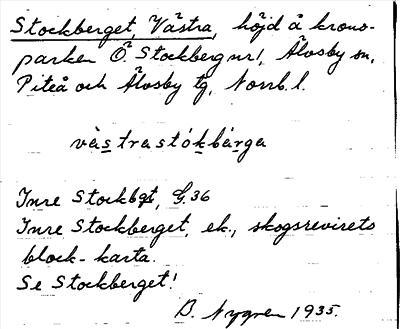 Stockberget, Västra, höjd å krono-
parken Ö. Stockberg nr 1, Älvsby sn,
Piteå och Älvsby tg, Norrb. l.
västrastókbärga
Inre Stockbgt, G. 36
Inre Stockberget, ek., skogsrevirets
block-karta.
Se Stockberget!
B. Nygren 1935.